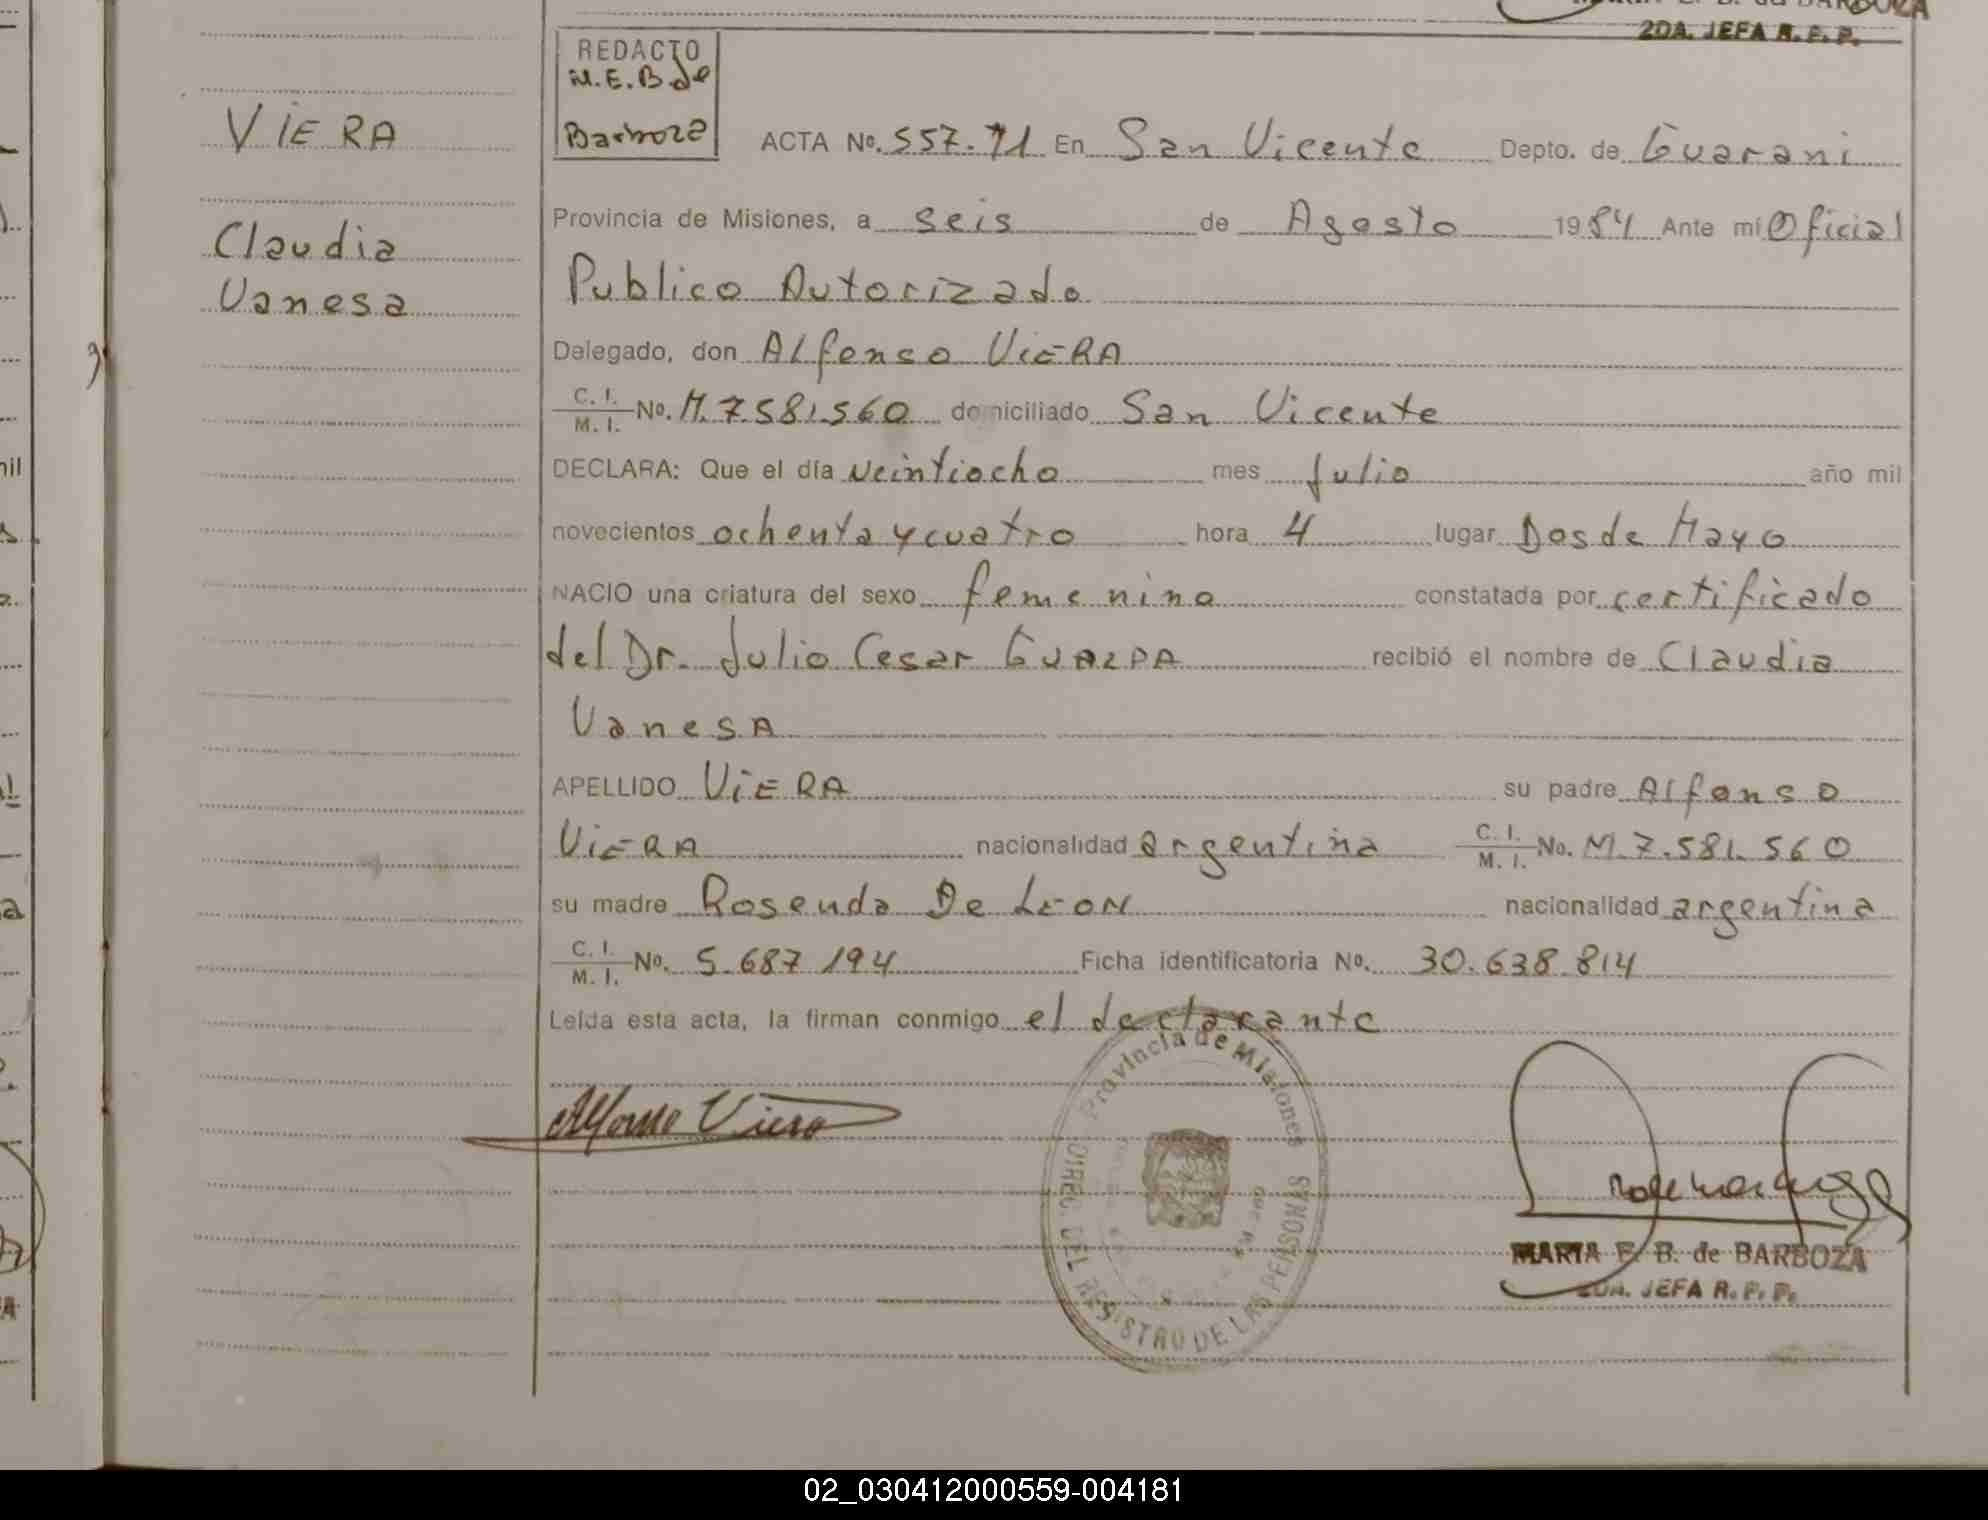 2DA. JEFA R. P. P.
REDACTO
M.E.B de
Barboza
VIERA
Claudia
Vanesa
ACTA No. 557. T1 En San Vicente Depto. de Guarani
Provincia de Misiones, a seis de Agosto 1984 Ante mi Oficial
Publico Autorizado
Delegado, don Alfonso VIERA
C. I.
M. I. No. M. 7.581.560 domiciliado San Vicente
DECLARA: Que el día veintiocho mes Julio año mil
novecientos ochenta y cuatro hora 4 lugar Dos de Mayo
NACIO una criatura del sexo femenino constatada por certificado
del Dr. Julio Cesar GUALPA recibió el nombre de Claudia
Vanesa
APELLIDO VIERA su padre Alfonso
VIERA nacionalidad argentina C. I.
M. I. No. M. 7.581.560
su madre Rosenda De LEON nacionalidad argentina
C. I.
M. I. No. 5.687.194 Ficha identificatoria No. 30.638.814
Leída esta acta, la firman conmigo el declarante
Alfonso Viera
Provincia de Misiones
DIREC. DEL REGISTRO DE LAS PERSONAS
MARIA E. B. de BARBOZA
2DA. JEFA R. P. P.
02_030412000559-004181